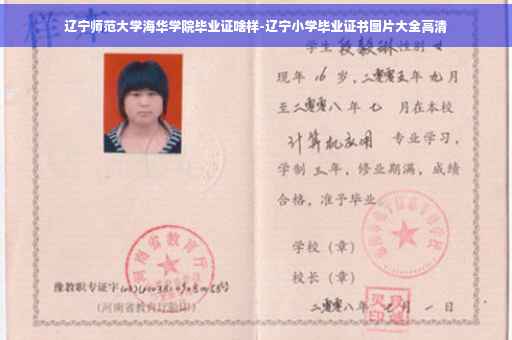 辽宁师范大学海华学院毕业证啥样-辽宁小学毕业证书图片大全高清
样本
学生段毅琳性别女
现年16岁，二零零五年九月
至二零零八年七月在本校
计算机应用 专业学习，
学制三年，修业期满，成绩
合格，准予毕业。
学校（章）
校长（章）
二零零八年七月一日
河南省教育厅
豫教职专证字
（河南省教育厅验印）